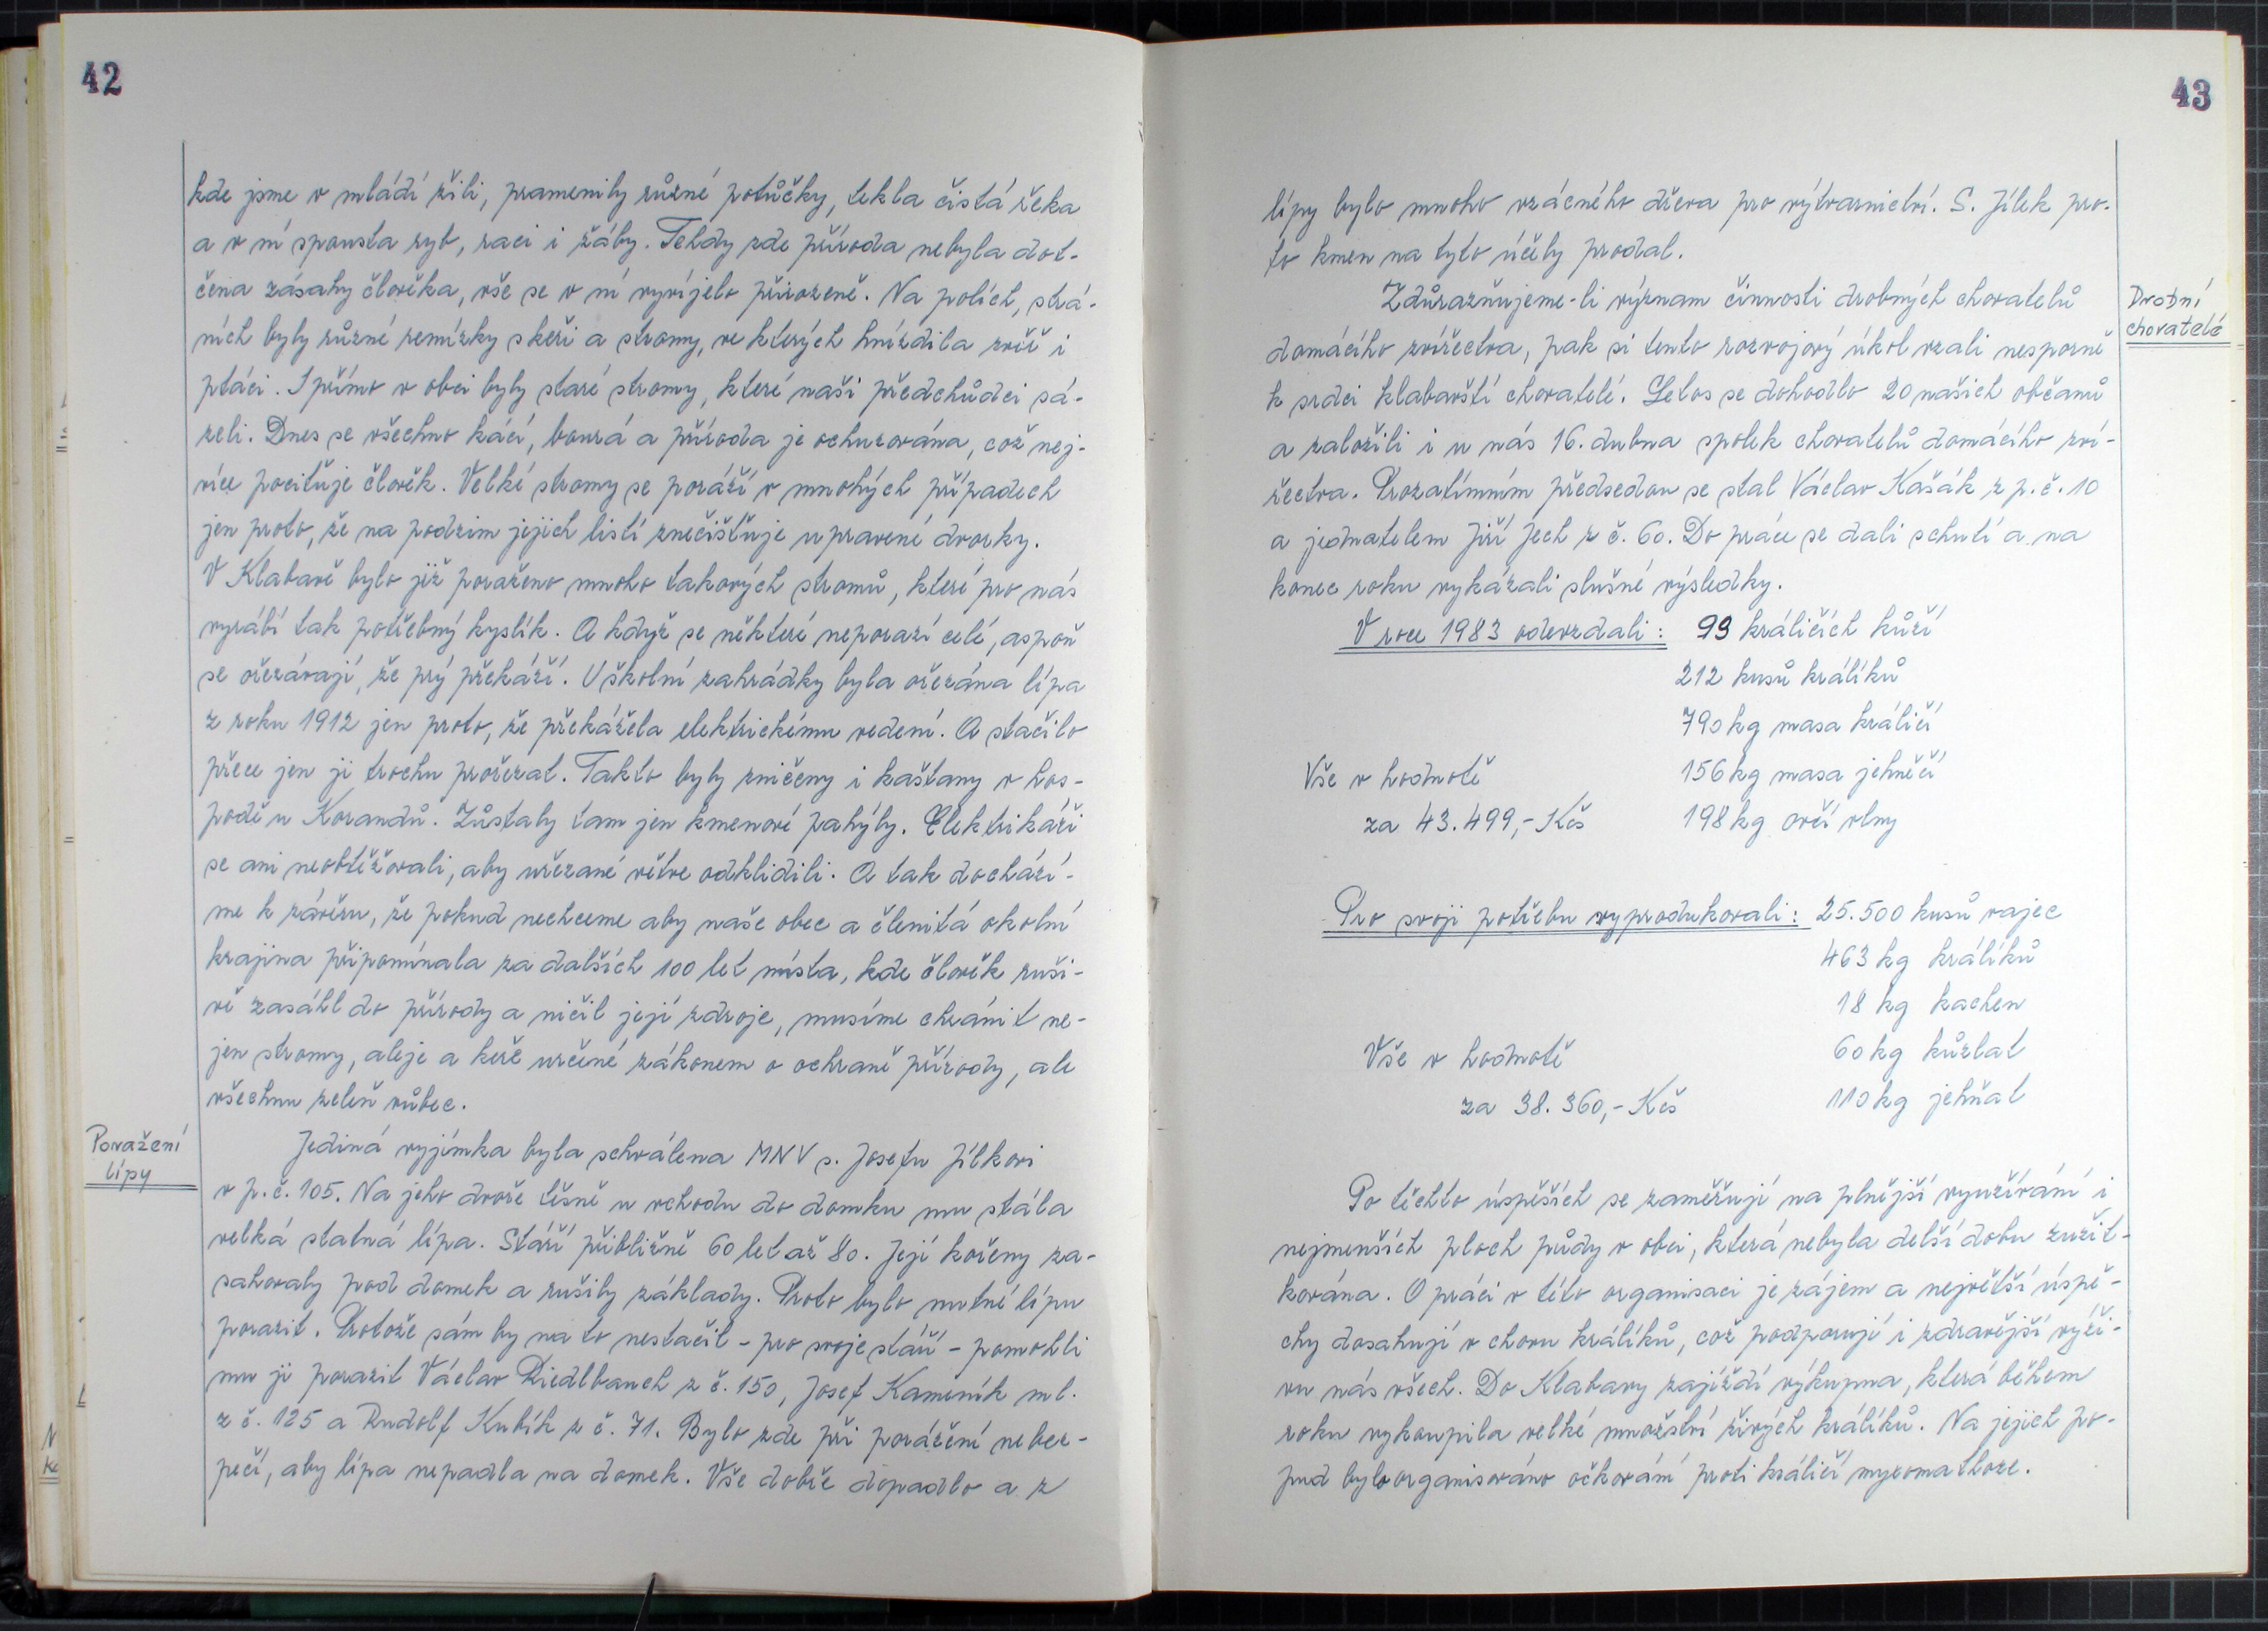 42
kde jsme v mládí žili, pramenily různé potůčky, tekla čistá řeka
a v ní spousta ryb, raci i žáby. Tehdy zde příroda nebyla dot-
čena zásahy člověka, vše se v ní vyvíjelo přirozeně. Na polích, strá-
ních byly různé remízky s keři a stromy, ve kterých hnízdila zvěř i
ptáci. I přímo v obci byly staré stromy, které naši předchůdci sá-
zeli. Dnes se všechno kácí, bourá a příroda je ochuzována, což nej-
více pociťuje člověk. Velké stromy se poráží v mnohých případech
jen proto, že na podzim jejich listí znečišťuje upravené dvorky.
V Klabavě bylo již poraženo mnoho takových stromů, které pro nás
vyrábí tak potřebný kyslík. A když se některé neporazí celé, aspoň
se ořezávají, že prý překáží. U školní zahrádky byla ořezána lípa
z roku 1912 jen proto, že překážela elektrickému vedení. A stačilo
přece jen ji trochu prořezat. Takto byly zničeny i kaštany v hos-
podě u Korandů. Zůstaly tam jen kmenové pahýly. Elektrikáři
se ani neobtěžovali, aby uřezané větve odklidili. A tak dochází-
me k závěru, že pokud nechceme aby naše obec a členitá okolní
krajina připomínala za dalších 100 let místa, kde člověk ruši-
vě zasáhl do přírody a ničil její zdroje, musíme chránit ne-
jen stromy, aleje a keře určené zákonem o ochraně přírody, ale
všechnu zeleň vůbec.
Poražení
lípy
Jediná vyjímka byla schválena MNV s. Josefu Jílkovi
v p.č. 105. Na jeho dvoře těsně u vchodu do domku mu stála
velká statná lípa. Stáří přibližně 60 let až 80. Její kořeny za-
sahovaly pod domek a rušily základy. Proto bylo nutné lípu
porazit. Protože sám by na to nestačil - pro svoje stáří - pomohli
mu ji porazit Václav Riedlbauch z č. 150, Josef Kameník ml.
z č. 125 a Rudolf Kubík z č. 71. Bylo zde při porážení nebez-
pečí, aby lípa nepadla na domek. Vše dobře dopadlo a z
43
lípy bylo mnoho vzácného dřeva pro výtvarnictví. S. Jílek pro-
to kmen na tyto účely prodal.
Drobní
chovatelé
Zdůrazňujeme-li význam činnosti drobných chovatelů
domácího zvířectva, pak si tento rozvojový úkol vzali nesporně
k srdci klabavští chovatelé. Letos se dohodlo 20 našich občanů
a založili i u nás 16. dubna spolek chovatelů domácího zví-
řectva. Prozatímním předsedou se stal Václav Kašák z p.č. 10
a jednatelem Jiří Jech z č. 60. Do práce se dali s chutí a na
konec roku vykázali slušné výsledky.
V roce 1983 odevzdali: 99 králičích kůží
212 kusů králíků
790 kg masa králičí
Vše v hodnotě 156 kg masa jehněčí
za 43.499,- Kčs 198 kg ovčí vlny
Pro svoji potřebu vyprodukovali: 25.500 kusů vajec
463 kg králíků
18 kg kachen
Vše v hodnotě 60 kg kůzlat
za 38.360,- Kčs 110 kg jehňat
Po těchto úspěších se zaměřují na plnější využívání i
nejmenších ploch půdy v obci, která nebyla delší dobu zužit-
kována. O práci v této organisaci je zájem a největší úspě-
chy dosahují v chovu králíků, což podporují i zdravější výži-
vu nás všech. Do Klabavy zajíždí výkupna, která během
roku vykoupila velké množství živých králíků. Na jejich po-
pud bylo organisováno očkování proti králičí myxomathoze.